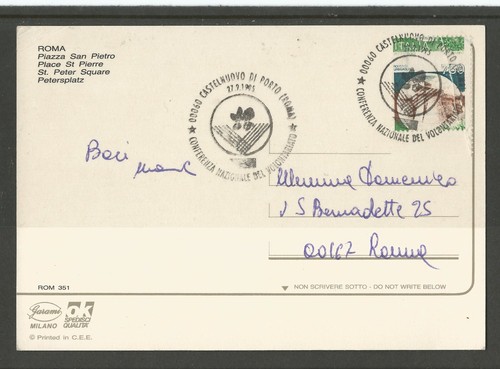 ROMA
Piazza San Pietro
Place St Pierre
St. Peter Square
Petersplatz
00060 CASTELNUOVO DI PORTO (ROMA)
CONFERENZA NAZIONALE DEL VOLONTARIATO
00060 CASTELNUOVO DI PORTO
CONFERENZA NAZIONALE DEL
750
Baci
Domenico
V S Bernadette 25
00167 Roma
ROM 351
NON SCRIVERE SOTTO - DO NOT WRITE BELOW
Garami
MILANO
OK
SPEDISCI
QUALITÀ
© Printed in C.E.E.